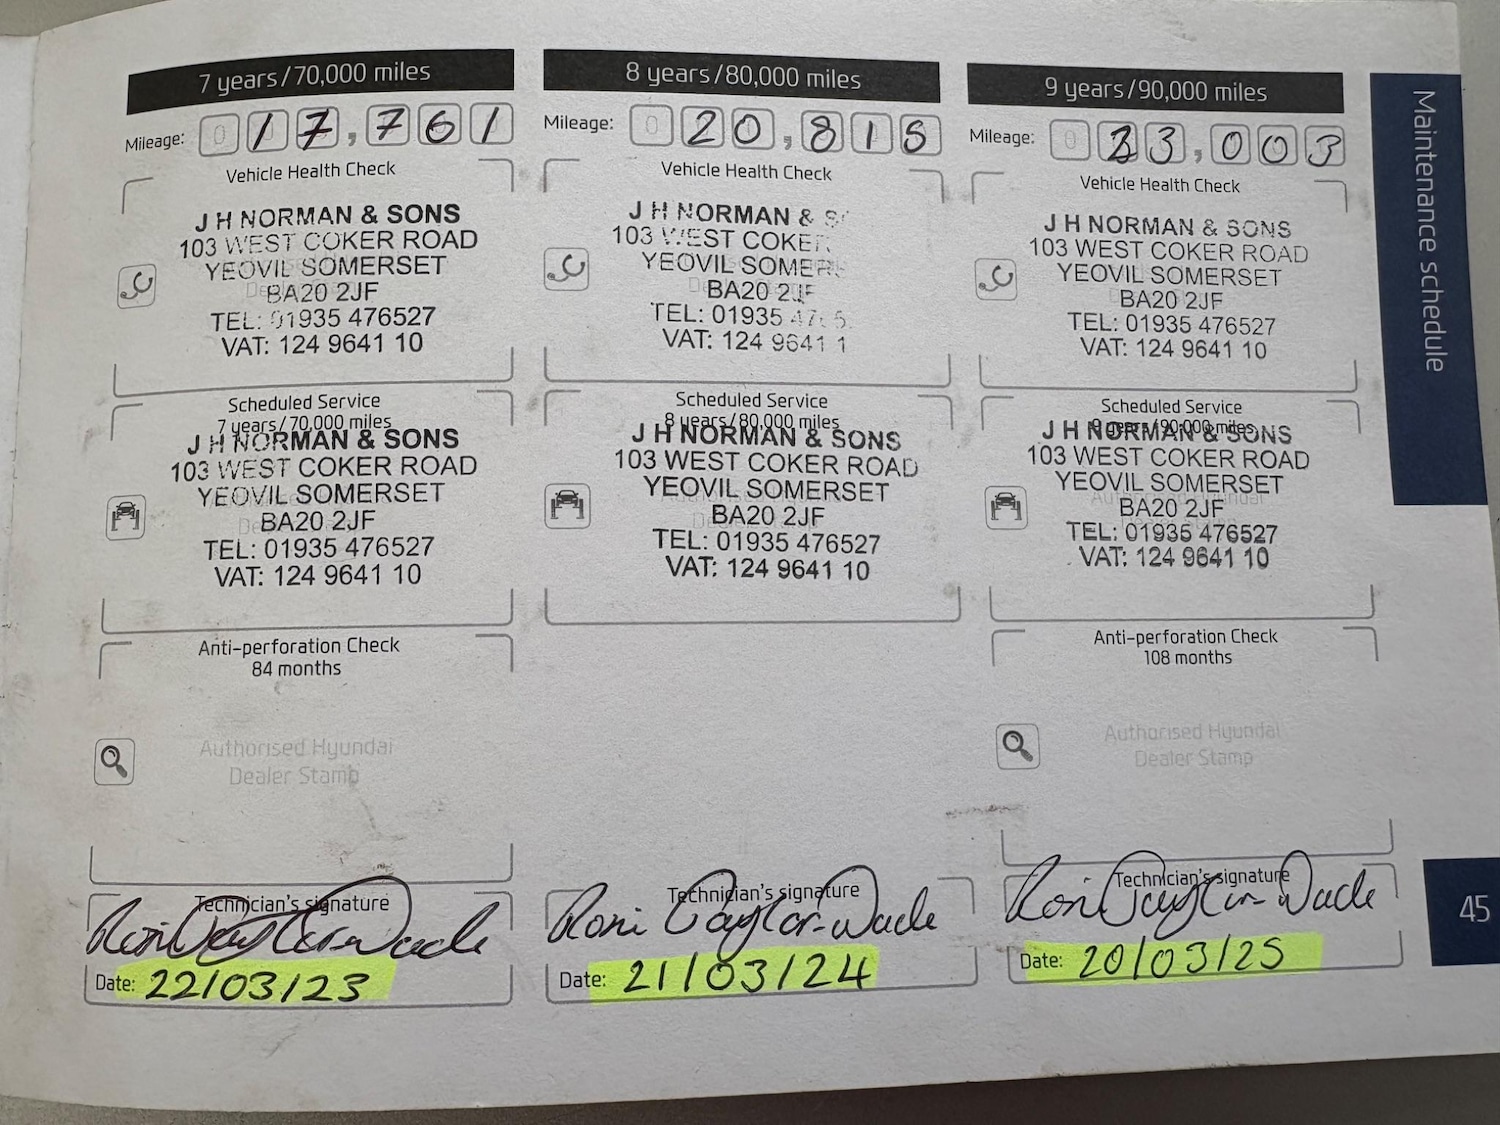 7 years/70,000 miles
Mileage: 0 17,761
Vehicle Health Check
J H NORMAN & SONS
103 WEST COKER ROAD
YEOVIL SOMERSET
BA20 2JF
TEL: 01935 476527
VAT: 124 9641 10
Scheduled Service
7 years/70,000 miles
J H NORMAN & SONS
103 WEST COKER ROAD
YEOVIL SOMERSET
BA20 2JF
TEL: 01935 476527
VAT: 124 9641 10
Anti-perforation Check
84 months
Authorised Hyundai
Dealer Stamp
Technician's signature
Roni Taylor-Wade
Date: 22/03/23
8 years/80,000 miles
Mileage: 0 20,818
Vehicle Health Check
J H NORMAN & S
103 WEST COKER
YEOVIL SOMERS
BA20 2JF
TEL: 01935 47 5
VAT: 124 9641 1
Scheduled Service
8 years/80,000 miles
J H NORMAN & SONS
103 WEST COKER ROAD
YEOVIL SOMERSET
BA20 2JF
TEL: 01935 476527
VAT: 124 9641 10
Technician's signature
Roni Taylor-Wade
Date: 21/03/24
9 years/90,000 miles
Mileage: 0 23,003
Vehicle Health Check
J H NORMAN & SONS
103 WEST COKER ROAD
YEOVIL SOMERSET
BA20 2JF
TEL: 01935 476527
VAT: 124 9641 10
Scheduled Service
9 years/90,000 miles
J H NORMAN & SONS
103 WEST COKER ROAD
YEOVIL SOMERSET
Authorised Hyundai
BA20 2JF
TEL: 01935 476527
VAT: 124 9641 10
Anti-perforation Check
108 months
Authorised Hyundai
Dealer Stamp
Technician's signature
Roni Taylor-Wade
Date: 20/03/25
Maintenance schedule
45